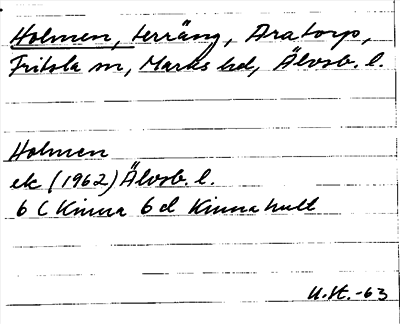 Holmen, terräng, Aratorp,
Fritsla sn, Marks hd, Älvsb. l.
Holmen
ek (1962) Älvsb. l.
6 C Kinna 6 d Kinnahult
U.St.-63